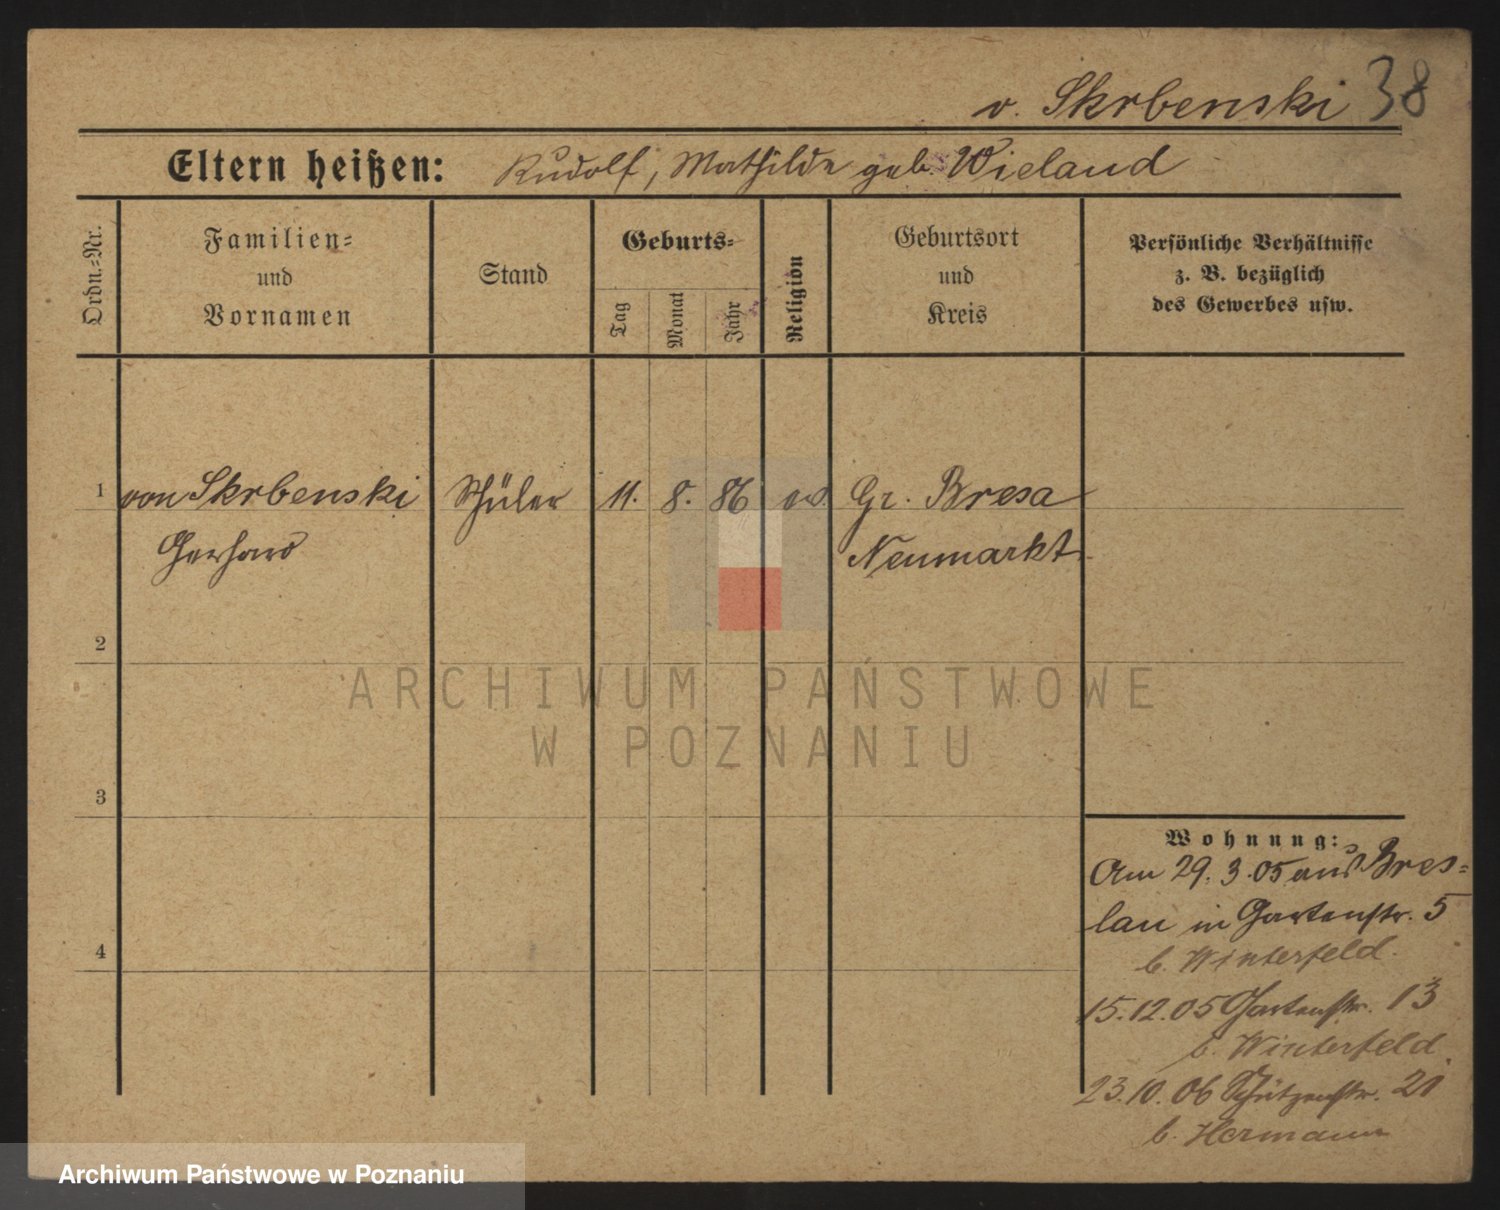 v. Skrbenski 38
Eltern heißen: Rudolf, Mathilde geb. Wieland
Ordn.-Nr.
Familien-
und
Vornamen
Stand
Geburts-
Tag
Monat
Jahr
Religion
Geburtsort
und
Kreis
Persönliche Verhältnisse
z. B. bezüglich
des Gewerbes usw.
1 von Skrbenski Schüler 11. 8. 86 ev. Gr. Bresa
Gerhard Neumarkt
2
3
4
Wohnung:
Am 29.3.05 aus Bres-
lau in Gartenstr. 5
b. Winterfeld.
15.12.05 Gartenstr. 13
b. Winterfeld
23.10.06 Schützenstr. 21
b. Hermann
ARCHIWUM PAŃSTWOWE
W POZNANIU
Archiwum Państwowe w Poznaniu